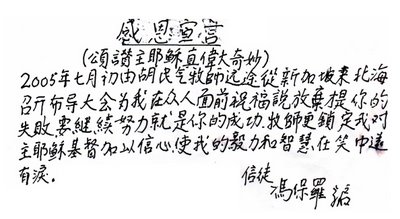 感恩宣言
(頌讚主耶穌真偉大奇妙)
2005年七月初由胡民乞牧師远途從新加坡來北海
召开布导大会为我在众人面前祝福說放棄是你的
失敗要继续努力就是你的成功.牧師更鎖定我对
主耶稣基督加以信心,使我的毅力和智慧.在笑中还
有淚.
信徒
馮保羅